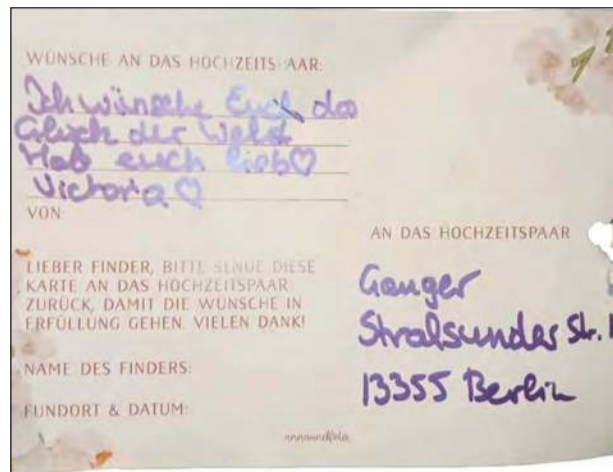 WÜNSCHE AN DAS HOCHZEITS AAR:
Ich wünsche Euch das
Glück der Welt
Hab euch lieb♡
Victoria ♡
VON:
LIEBER FINDER, BITTE SENDE DIESE
KARTE AN DAS HOCHZEITSPAAR
ZURÜCK, DAMIT DIE WÜNSCHE IN
ERFÜLLUNG GEHEN. VIELEN DANK!
NAME DES FINDERS:
FUNDORT & DATUM:
AN DAS HOCHZEITSPAAR
Gauger
Stralsunder Str. 1
13355 Berlin